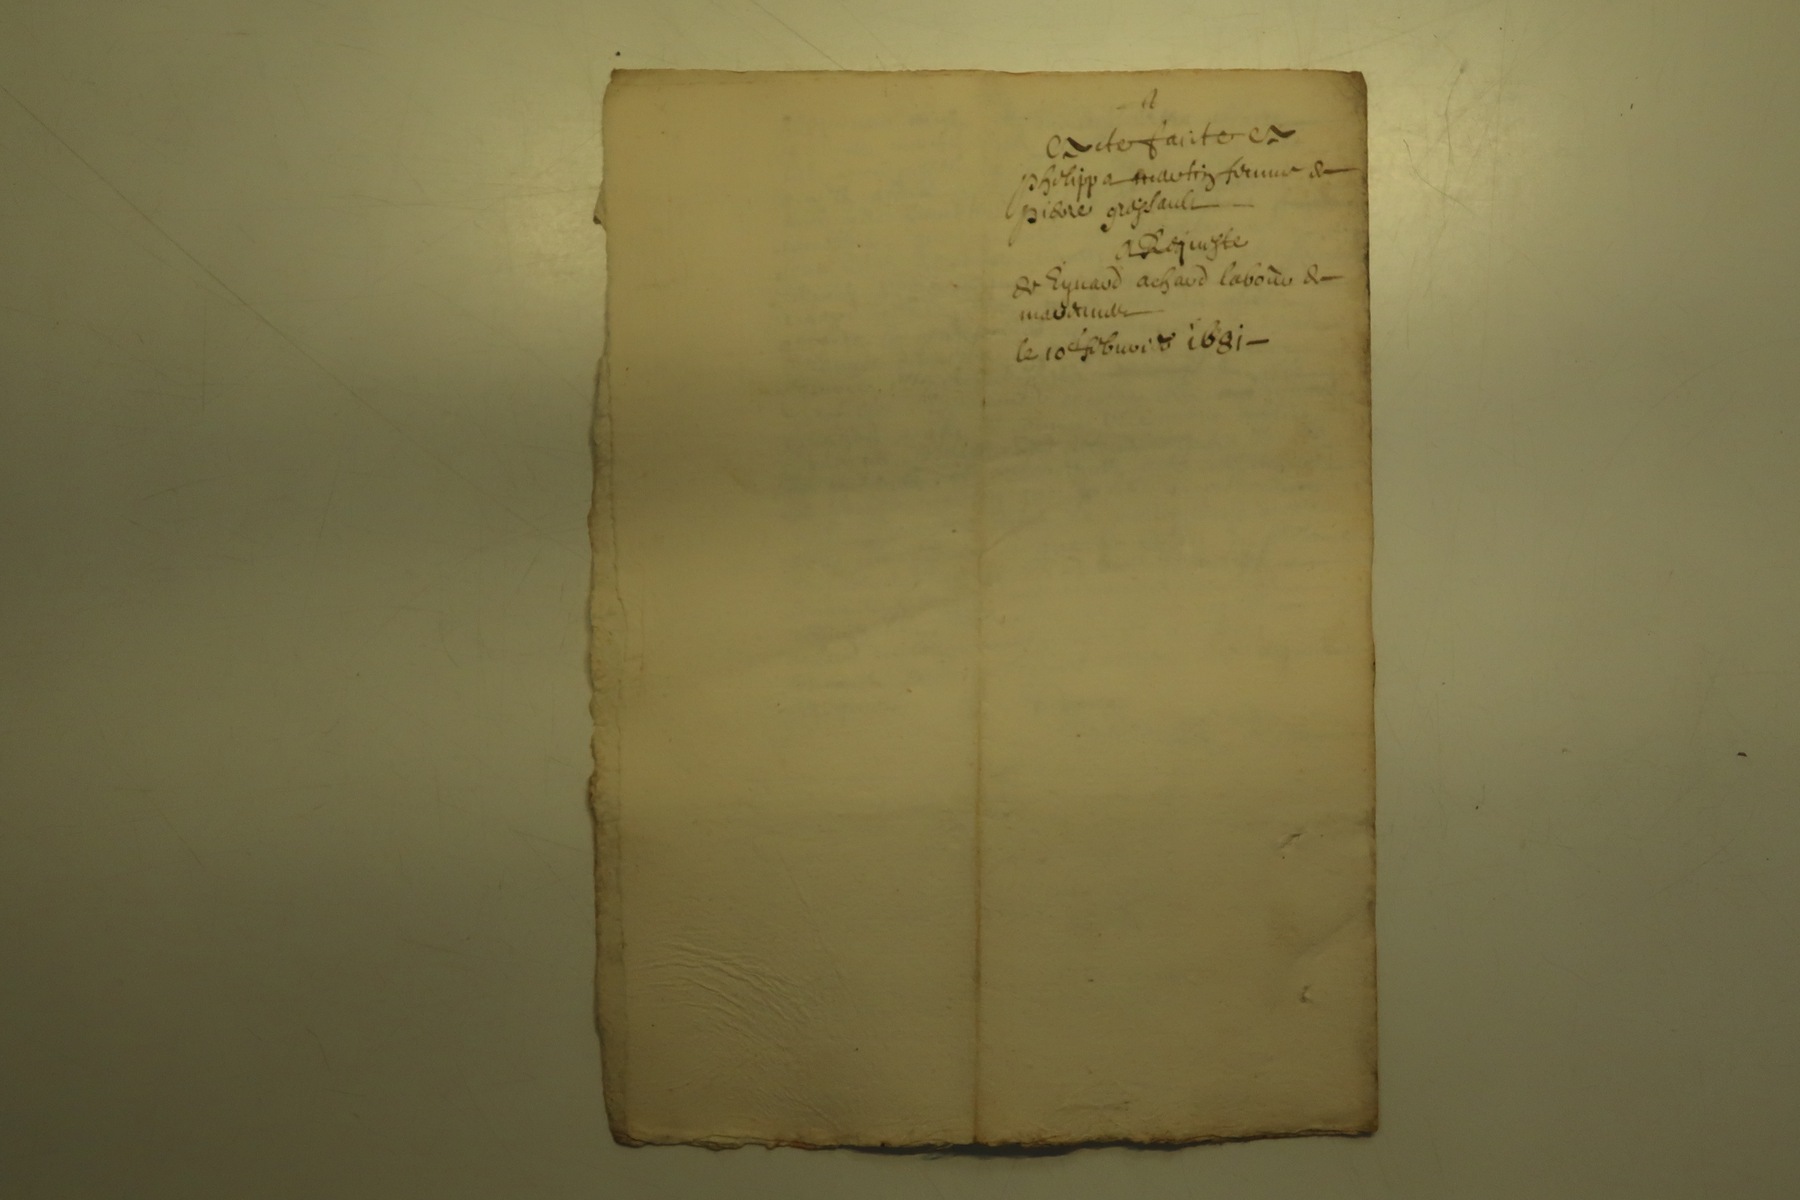 acte faite a
phelippa martin femme de
pierre
a Requeste
de Eynard achard laboure de
le 10e febvrier 1681